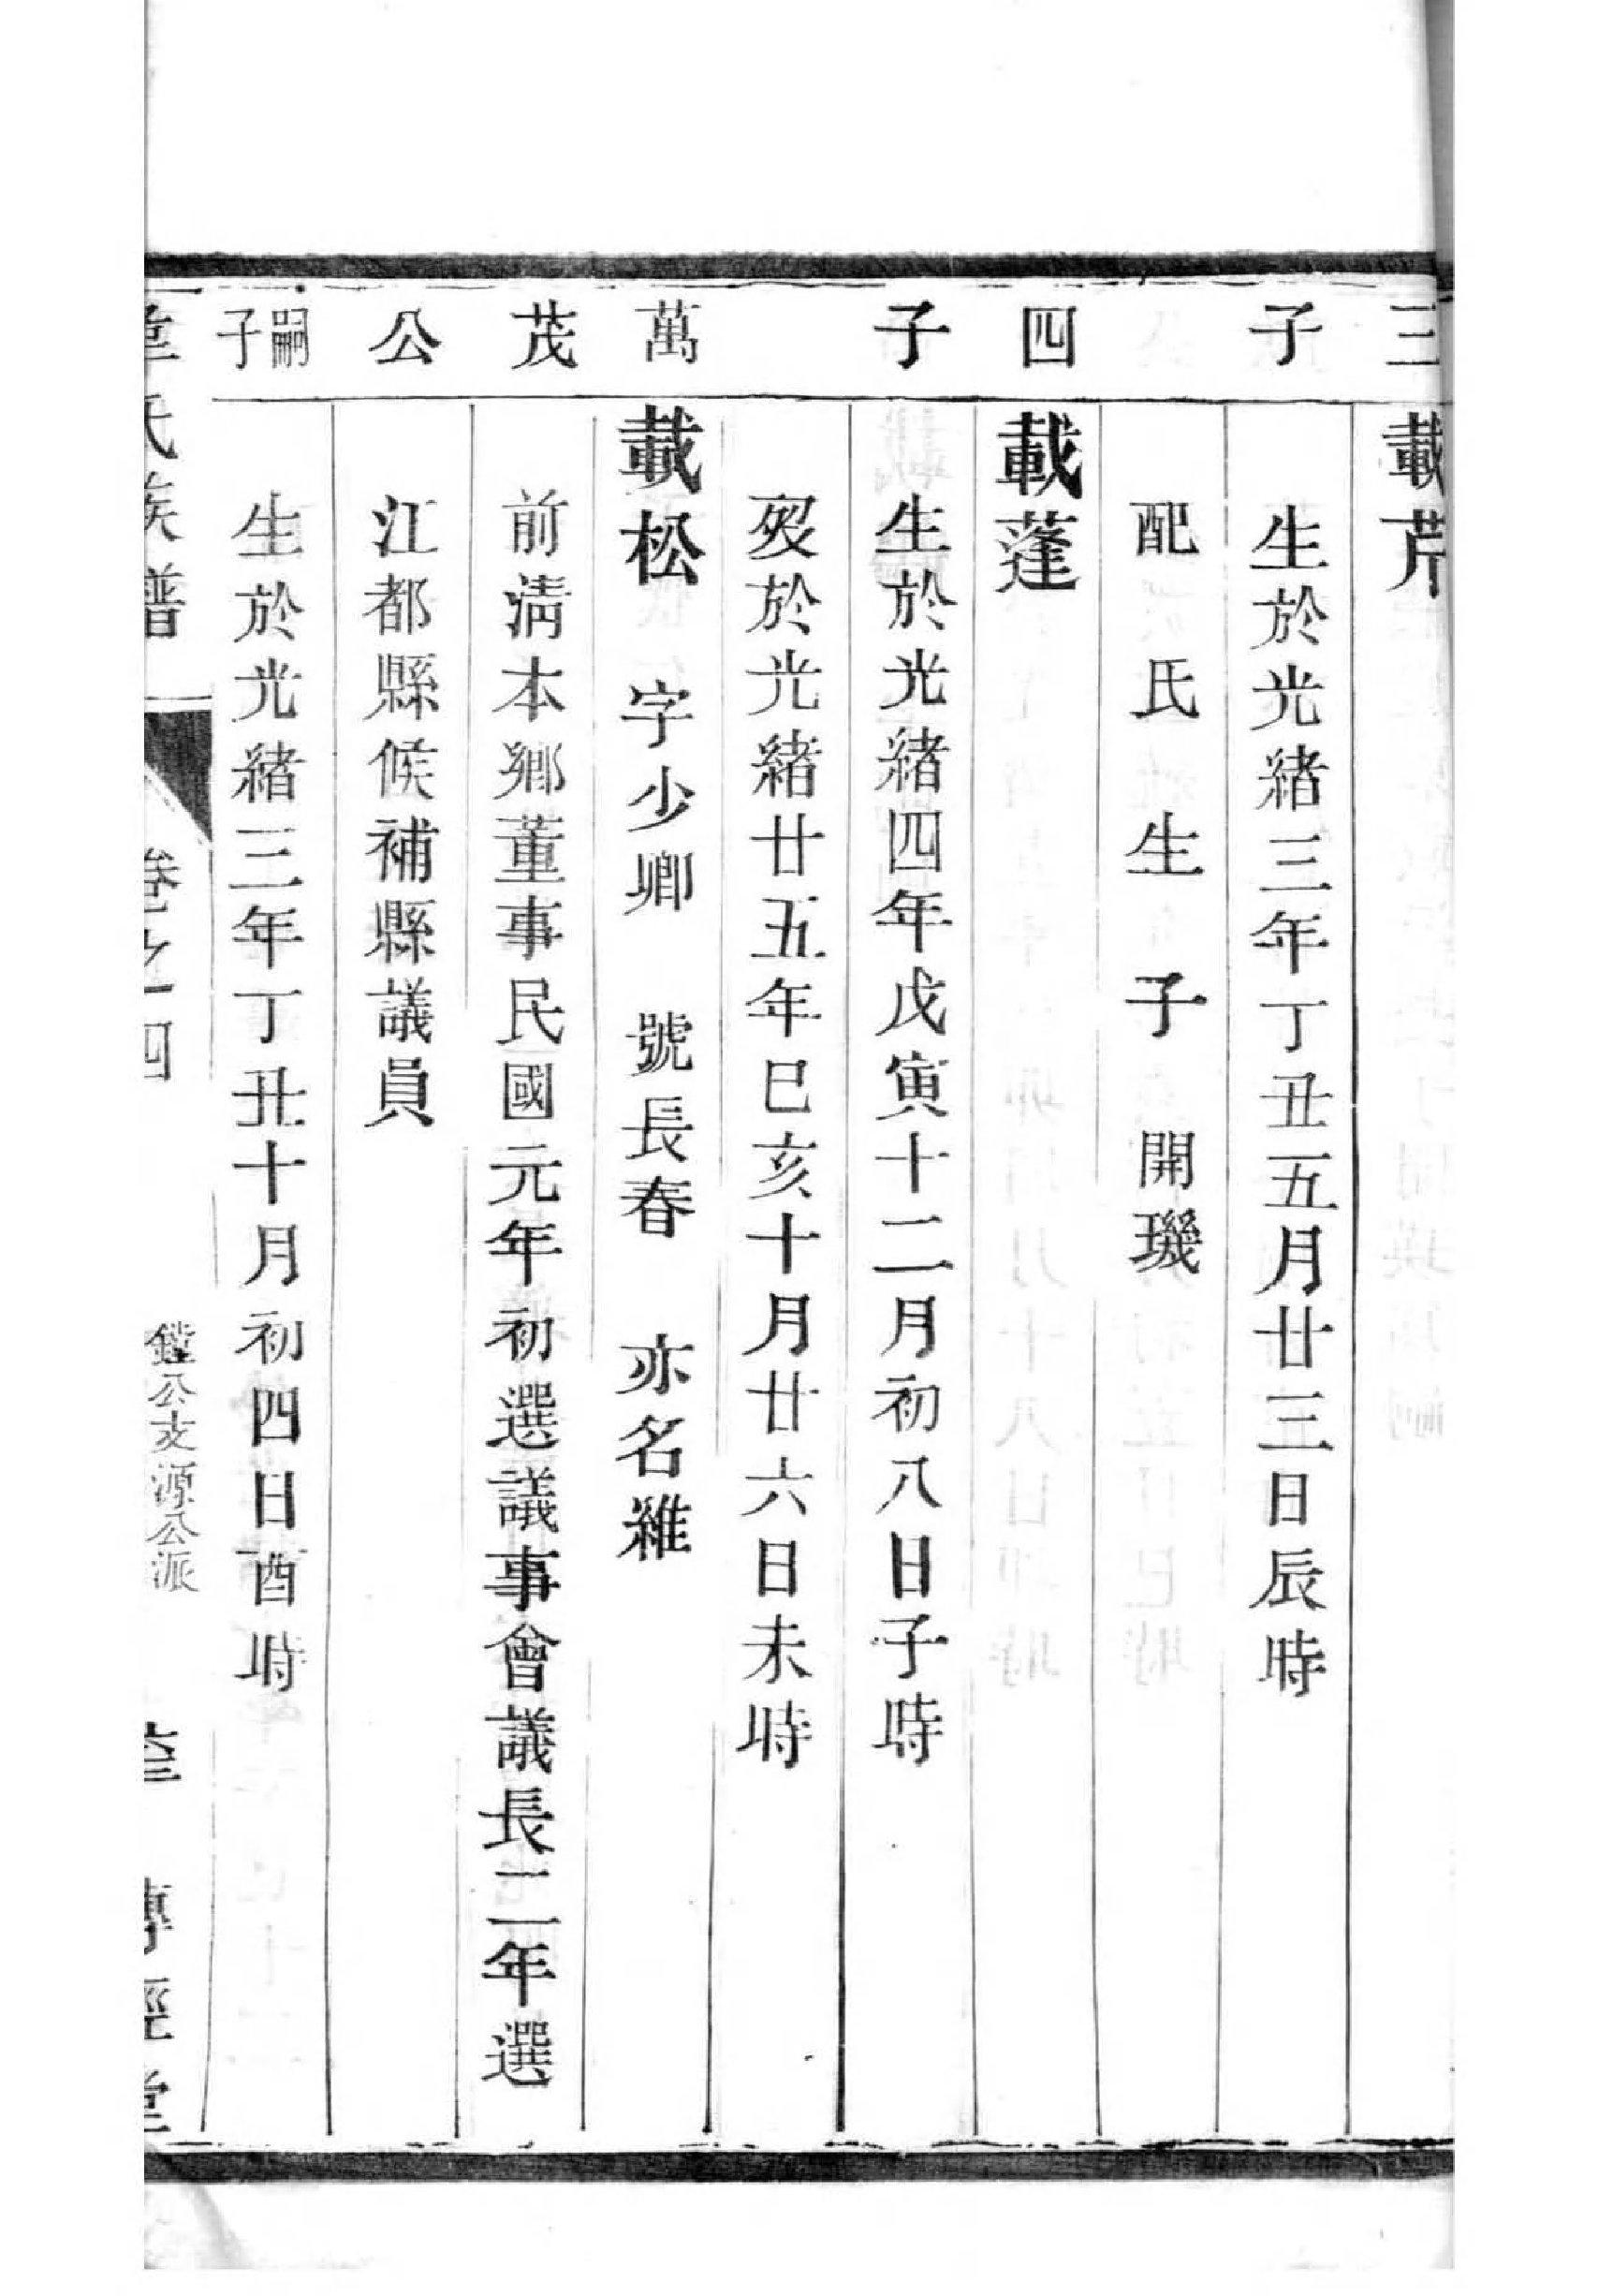 三 載芹
子 生於光緒三年丁丑五月廿三日辰時
配氏 生子 開璣
四 載蓬
子 生於光緒四年戊寅十二月初八日子時
歿於光緒廿五年巳亥十月廿六日未時
萬 載松 字少卿 號長春 亦名維
茂 前清本鄉董事民國元年初選議事會議長二年選
公 江都縣候補縣議員
嗣子 生於光緒三年丁丑十月初四日酉時
氏族譜 卷之四 鏜公支源公派 傳經堂